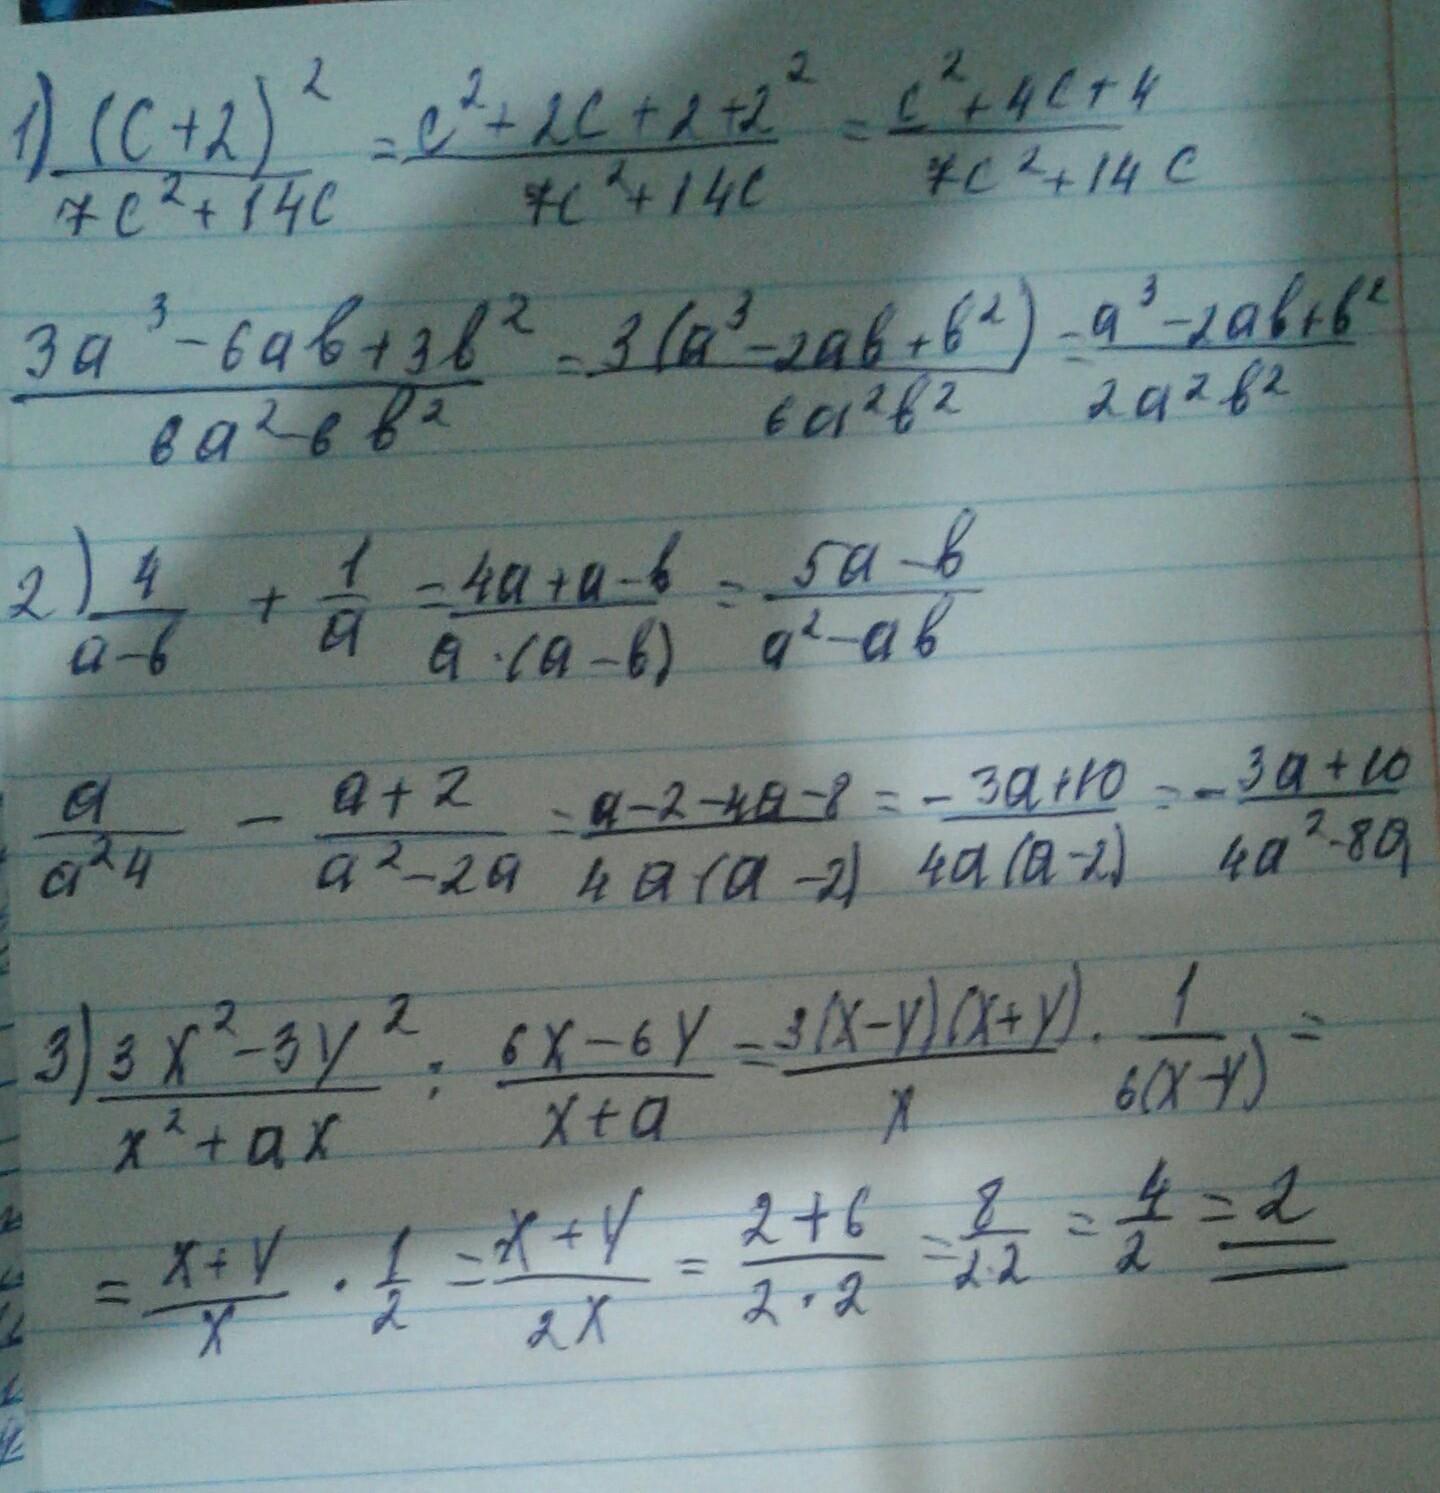 1) (c+2)²/(7c²+14c) = (c²+2c+2+2²)/(7c²+14c) = (c²+4c+4)/(7c²+14c)
(3a³-6ab+3b²)/(6a²-6b²) = 3(a³-2ab+b²)/(6a²b²) = (a³-2ab+b²)/(2a²b²)
2) 4/(a-b) + 1/a = (4a+a-b)/(a·(a-b)) = (5a-b)/(a²-ab)
a/(a²4) - (a+2)/(a²-2a) = (a-2-4a-8)/(4a·(a-2)) = -(3a+10)/(4a(a-2)) = -(3a+10)/(4a²-8a)
3) (3x²-3y²)/(x²+ax) : (6x-6y)/(x+a) = 3(x-y)(x+y)/x · 1/(6(x-y)) =
= (x+y)/x · 1/2 = (x+y)/(2x) = (2+6)/(2·2) = 8/(2·2) = 4/2 = 2